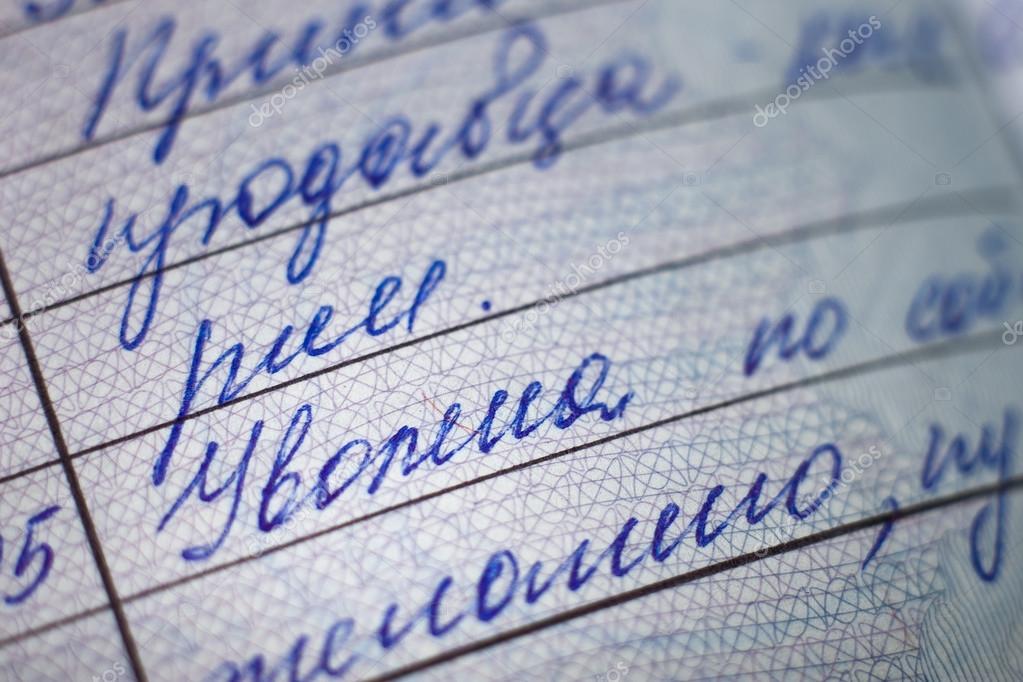 Прин
продавца
рии.
Уволена по соб
5 желанию, пу
depositphotos
depositphotos
depositphotos
depositphotos